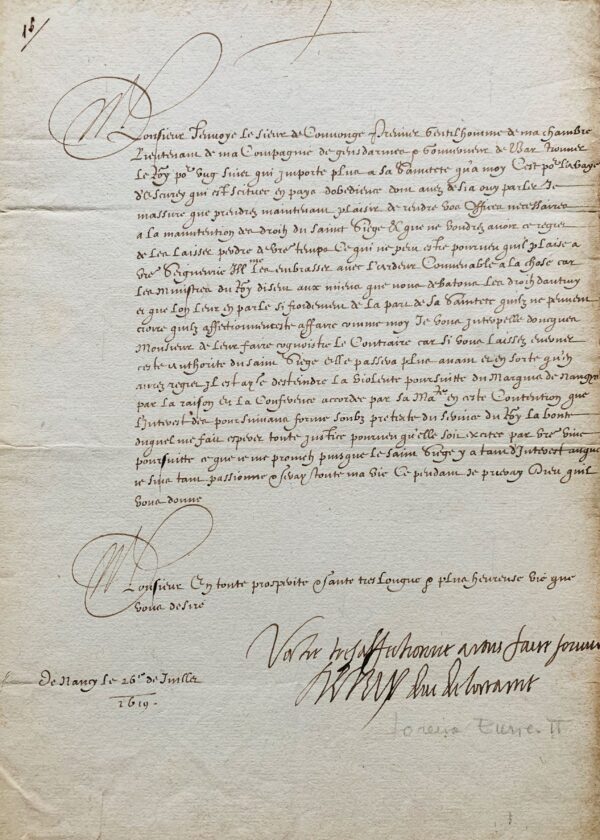 15
Monsieur Jenvoye le sieur de Couvonge premier gentilhomme de ma chambre
Lieutenant de ma Compagnie de gensdarmes & gouverneur de Bar trouver
le Roy po.r ung suiet qui importe plus a sa Sainteté qu'a moy C'est po.r la
d'Escurey qui est scituee en pays dobedience dont avez desia ouy parlé Je
massure que prendrez maintenant plaisir de rendre vos offices necessaires
a la maintention des droits du saint Siege & que ne voudrez avoir ce regret
de les laisser perdre de vre temps Ce qui ne peut estre pourveu quil plaise a
vre Seigneurie Ill.me les embrasser avec l'ardeur Convenable a la chose car
les Ministres du Roy disent aux miens que nous debatons les droits dautruy
et que lon leur en parle si froidement de la part de sa Sainteté quilz ne peuvent
croire quilz affectionnent cette affaire comme moy Je vous interpelle doncques
Monsieur de leur faire cognoistre le Contraire car si vous laissez enerver
ceste authorité du saint Siege elle passera plus avant et en sorte qu'en
aurez regret Il est aysé desteindre la Violente poursuitte du Marquis de
par la raison en la Conference accordee par sa Ma.té en ceste Contention que
l'interest des poursuivans forme soubz pretexte du service du Roy la bonté
duquel me fait esperer toute justice pourveu qu'elle soit excitee par vre vive
poursuitte ce que ie me promets puisque le saint Siege y a tant d'interest auquel
ie suis tant passionné & seray toute ma vie Ce pendant Je prieray Dieu quil
vous donne
Monsieur En toute prosperité & santé tres longue & plus heureuse vie que
vous desire
Vostre tresaffectionné a vous faire
Henry duc de lorraine
De Nancy le 26.e de Juillet
1619.
Lorena II